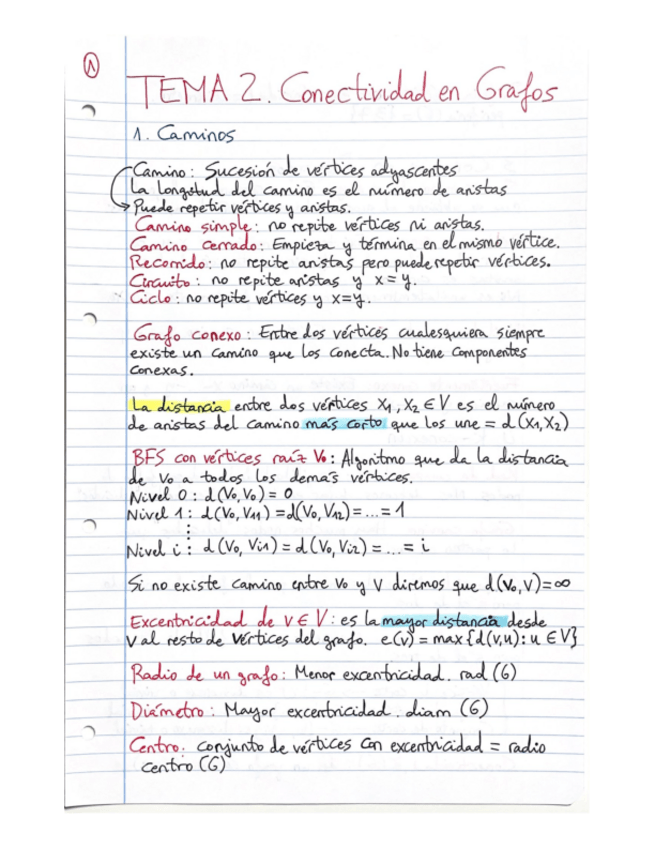 1
TEMA 2. Conectividad en Grafos
1. Caminos
Camino: Sucesión de vértices adyascentes
La longitud del camino es el número de aristas
Puede repetir vértices y aristas.
Camino simple: no repite vértices ni aristas.
Camino cerrado: Empieza y términa en el mismo vértice.
Recorrido: no repite aristas pero puede repetir vértices.
Circuito: no repite aristas y x=y.
Ciclo: no repite vértices y x=y.
Grafo conexo: Entre dos vértices cualesquiera siempre
existe un camino que los conecta. No tiene componentes
conexas.
La distancia entre dos vértices x₁, x₂ ∈ V es el número
de aristas del camino más corto que los une = d(x₁,x₂)
BFS con vértices raíz V₀: Algoritmo que da la distancia
de V₀ a todos los demás vértices.
Nivel 0: d(V₀,V₀) = 0
Nivel 1: d(V₀,V₁₁) = d(V₀,V₁₂) = ... = 1
⋮
Nivel i: d(V₀,Vi₁) = d(V₀,Vi₂) = ... = i
Si no existe camino entre V₀ y V diremos que d(V₀,V)=∞
Excentricidad de v ∈ V: es la mayor distancia desde
V al resto de vértices del grafo. e(v) = max{d(v,u): u ∈ V}
Radio de un grafo: Menor excentricidad. rad (G)
Diámetro: Mayor excentricidad. diam (G)
Centro: conjunto de vértices con excentricidad = radio
centro (G)